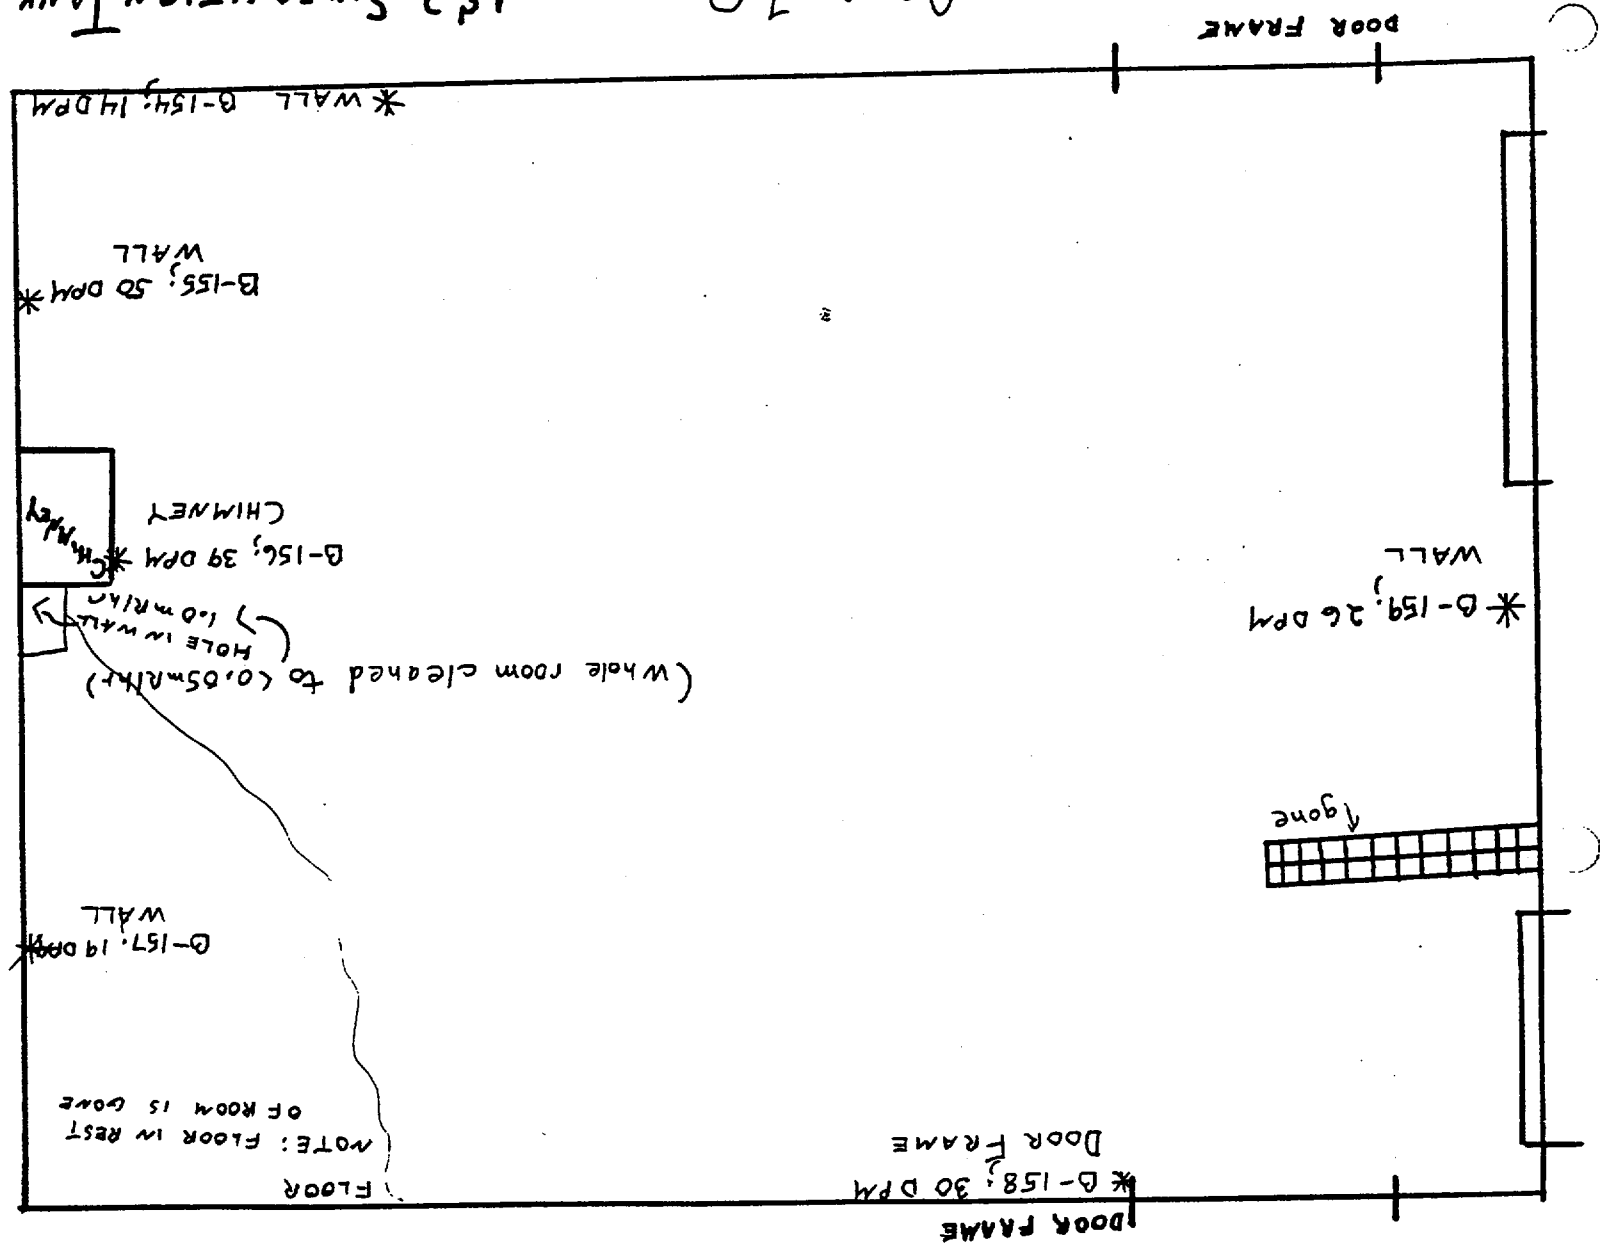 DOOR FRAME
* B-158; 30 DPM
DOOR FRAME
FLOOR
NOTE: FLOOR IN REST
OF ROOM IS GONE
B-157; 19 DPM *
WALL
gone
(Whole room cleaned to <0.05mR/hr)
HOLE IN WALL
; 1.0 mR/hr
* B-159; 26 DPM
WALL
B-156; 39 DPM *
CHIMNEY
CHIMNEY
B-155; 50 DPM *
WALL
* WALL B-154; 14 DPM
DOOR FRAME